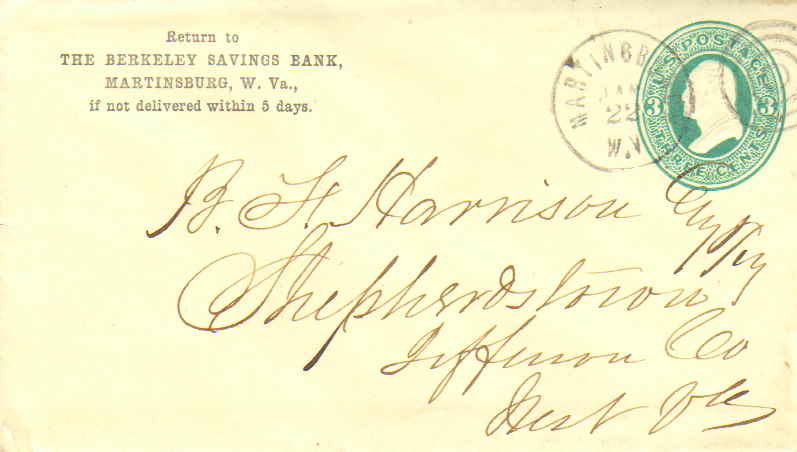 Return to
THE BERKELEY SAVINGS BANK,
MARTINSBURG, W. Va.,
if not delivered within 5 days.
MARTINSB
JAN
22
W.V
U.S. POSTAGE
3 3
THREE CENTS
B. F. Harrison
Shepherdstown
Jefferson Co
West Va